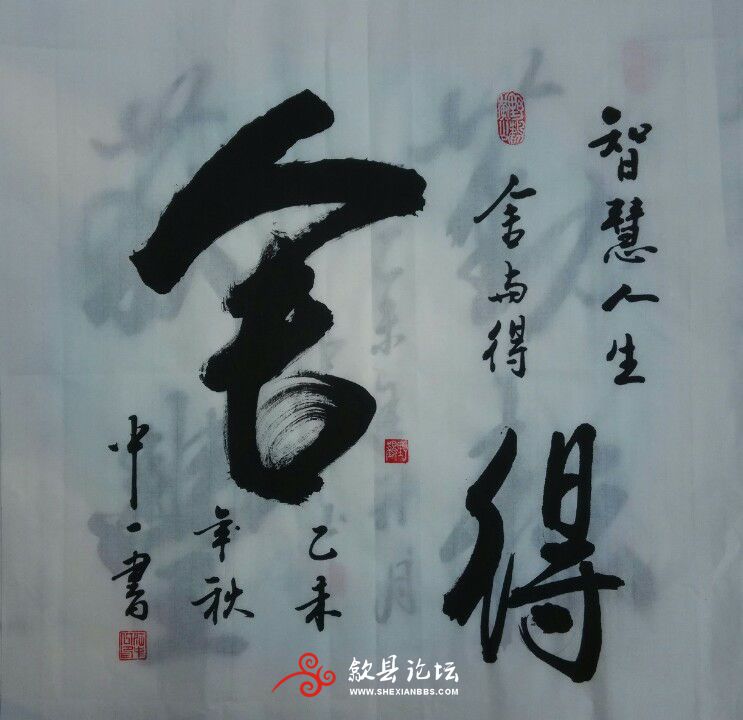 智慧人生
舍与得
舍得
乙未
年秋
中一書
歙县论坛
WWW.SHEXIANBBS.COM